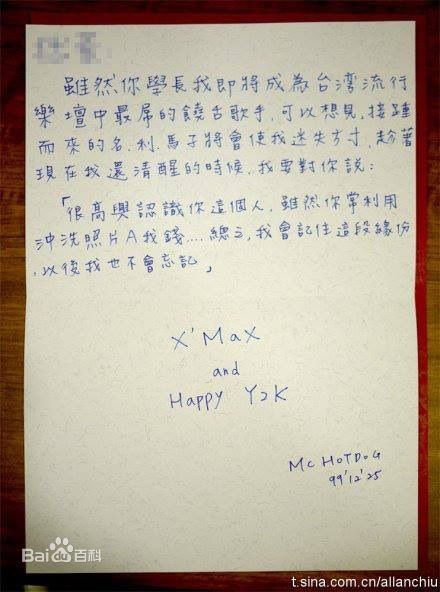 雖然你學長我即將成為台灣流行
樂壇中最屌的饒舌歌手,可以想見,接踵
而來的名.利.馬子將會使我迷失方寸,趁著
現在我還清醒的時候,我要對你說:
「很高興認識你這個人,雖然你常利用
沖洗照片A我錢....總之,我會記住這段緣份
,以後我也不會忘記」
X'MaX
and
Happy Y2K
MC HOTDOG
99'12'25
Bai百科
t.sina.com.cn/allanchiu